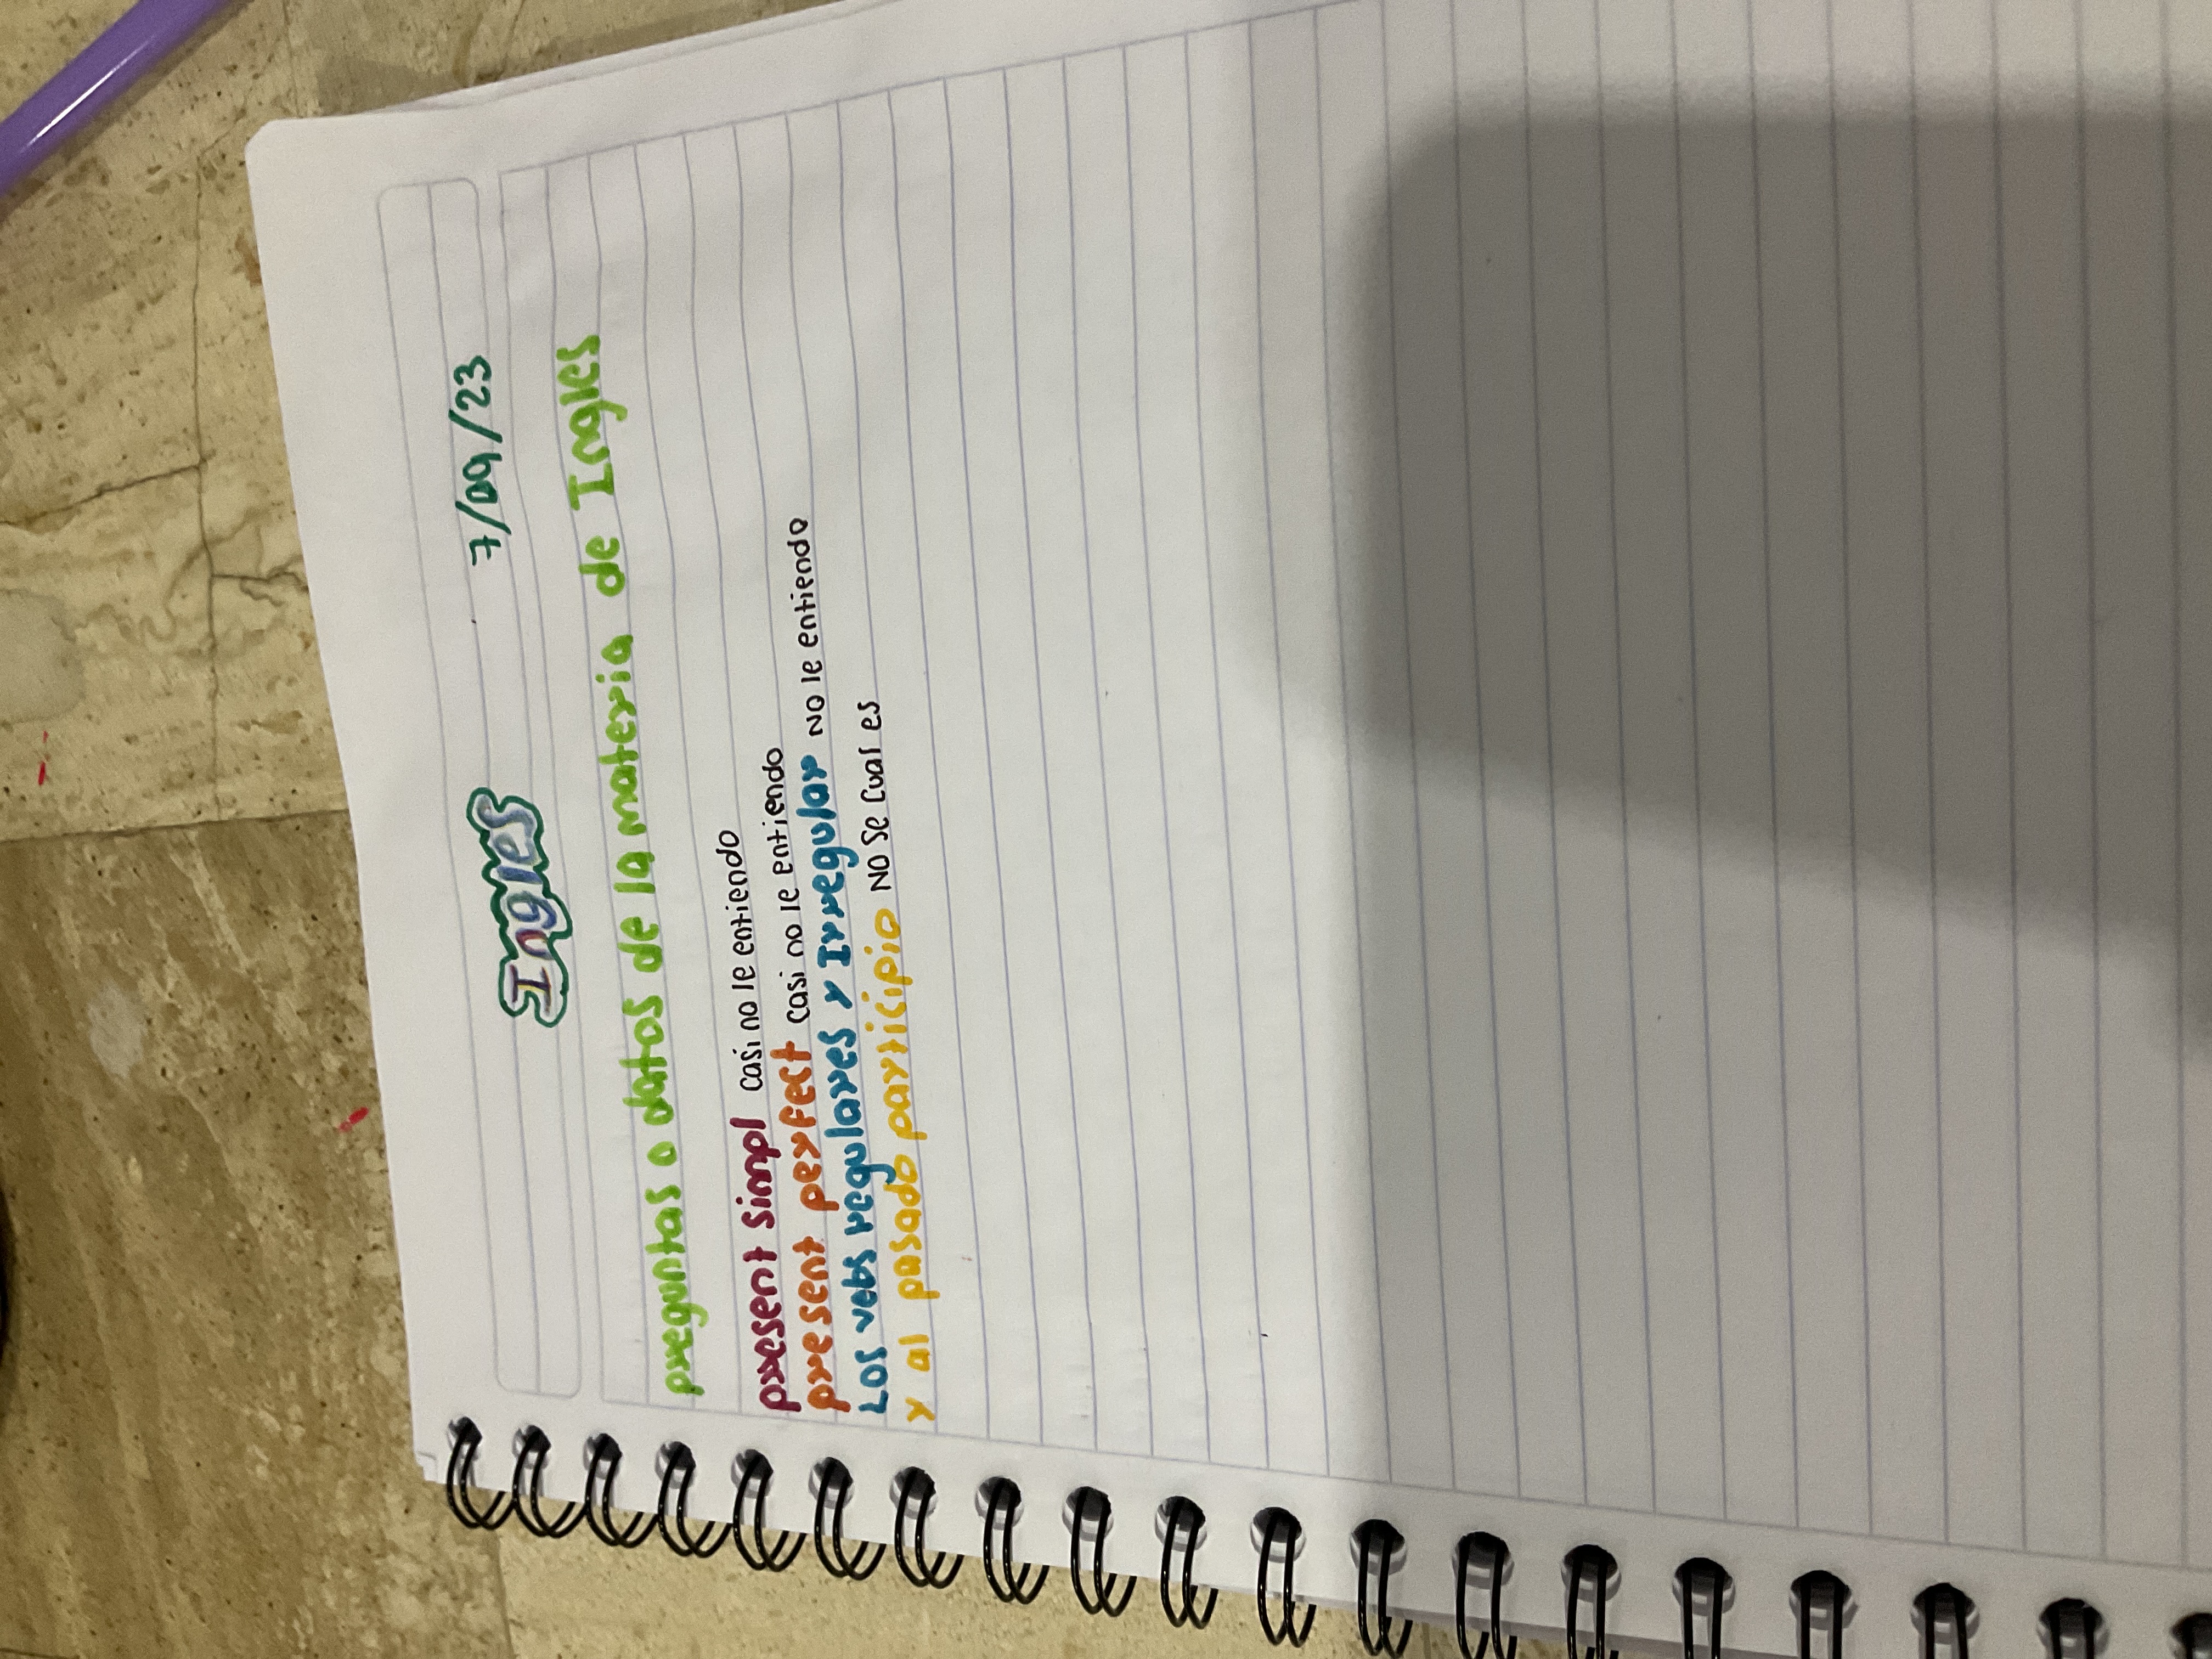 Ingles 7/09/23
preguntas o datos de la materia de Ingles
present simpl casi no le entiendo
present perfect casi no le entiendo
Los vebs regulares y Irregular NO le entiendo
y al pasado participio NO se cual es